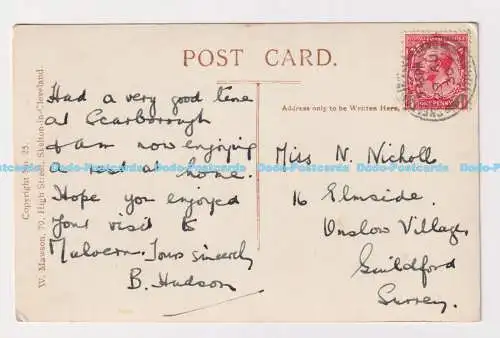 POST CARD.
Had a very good time
at Scarborough
& am now enjoying
a rest at home.
Hope you enjoyed
your visit to
Malvern. Yours sincerely
B. Hudson
Address only to be Written Here.
Miss N. Nicholl
16 Elmside.
Onslow Village
Guildford
Surrey.
Copyright No. 25.
W. Mawson, 70, High Street, Skelton-in-Cleveland.
PENNY
Dodo-Postcards Dodo-Postcards Dodo-Postcards Dodo-Postcards